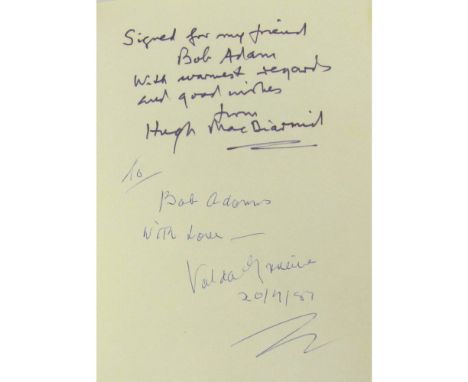 Signed for my friend
Bob Adam
With warmest regards
and good wishes
from
Hugh MacDiarmid
To
Bob Adams
With Love —
Valda Grieve